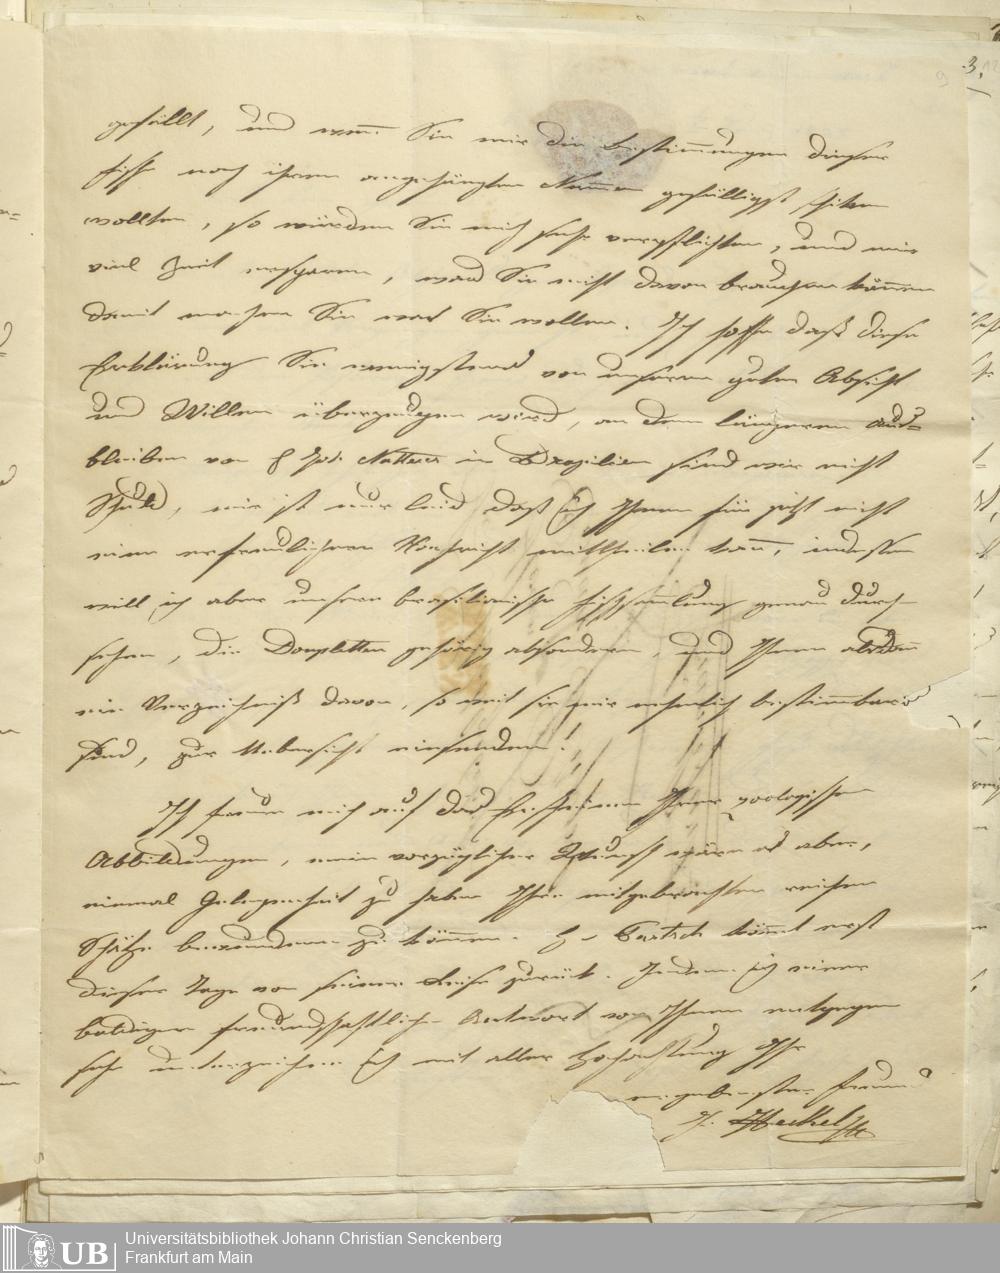 3.
9
gefällt, und wen̅ Sie mir die Bestim̅ungen dieser
Fische nach ihren angehängten Num̅ern gefälligst schiken
wollten, so würden Sie mich sehr verpflichten, und mir
viel Zeit ersparen, was Sie nicht davon brauchen kön̅en
damit machen Sie was Sie wollen. Ich hoffe daß diese
Erklärung Sie wenigstens von unserer guten Absicht
und Willen überzeugen wird, an dem längeren Aus=
bleiben von H Joh. Natterer in Brasilien sind wir nicht
Schuld, mir ist nur leid daß ich Ihnen für jetzt nicht
eine erfreulichere Nachricht mittheilen kan̅, indessen
will ich aber unsere brasilianische Fischsam̅lung genau durch-
sehen, die Doupletten gehörig absondern, und Ihnen alsdan̅
ein Verzeichniß davon, so weit sie mir nehmlich bestimmbar
sind, zur Uebersicht einsenden!
Ich freue mich auf das Erscheinen Ihrer zoologischen
Abbildungen, mein vorzüglicher Wunsch wäre es aber,
einmal Gelegenheit zu haben Ihre mitgebrachten reichen
Schätze bewundern zu kön̅en. H v Partsch köm̅t erst
dieser Tage von seiner Reise zurük. Indem ich einer
baldigen freundschaftlichen Antwort von Ihnen entgegen
sehe unterzeichne ich mit aller Hochachtung Ihr
ergebenster Freund
J. Heckel
UB
Universitätsbibliothek Johann Christian Senckenberg
Frankfurt am Main